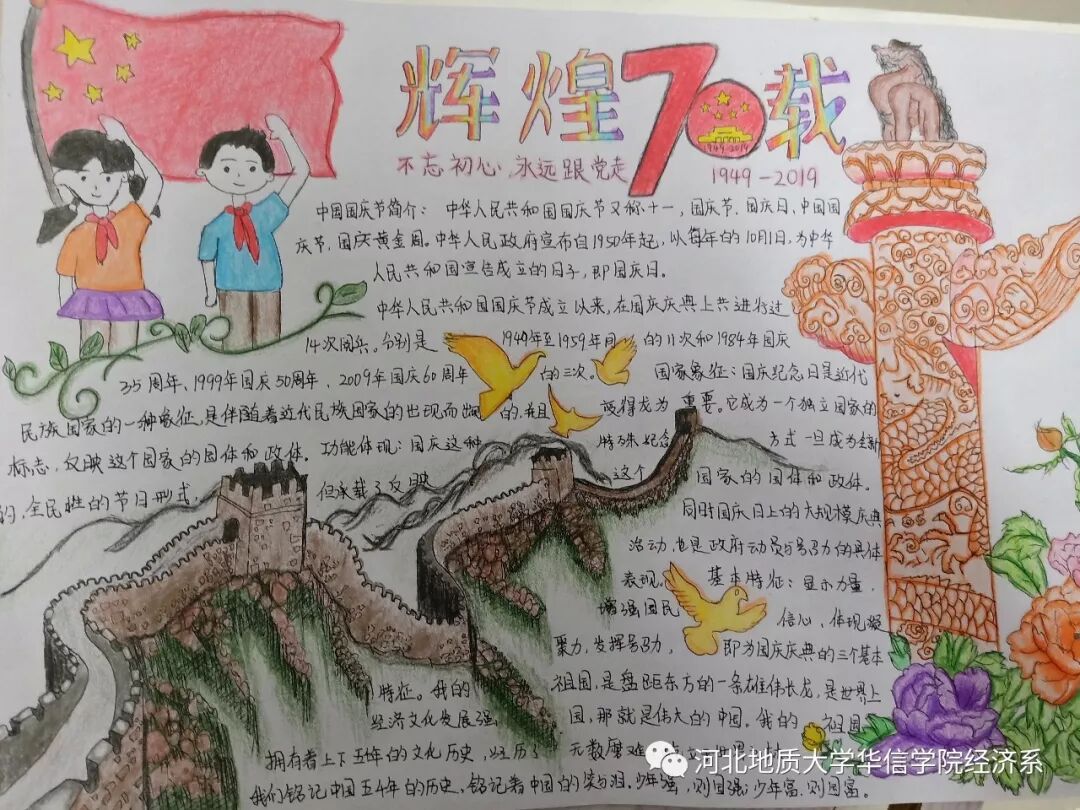 辉煌70载
1949-2019
不忘初心,永远跟党走
1949-2019
中国国庆节简介: 中华人民共和国国庆节又称十一,国庆节、国庆日、中国国
庆节,国庆黄金周。中华人民政府宣布自1950年起,以每年的10月1日,为中华
人民共和国宣告成立的日子,即国庆日。
中华人民共和国国庆节成立以来,在国庆庆典上共进行过
14次阅兵。分别是 1949年至1959年间 的11次和1984年国庆
35周年、1999年国庆50周年、2009年国庆60周年 的三次。 国家象征:国庆纪念日是近代
民族国家的一种象征,是伴随着近代民族国家的出现而出现 的,并且 变得尤为 重要。它成为一个独立国家的
标志,反映这个国家的国体和政体。功能体现:国庆这种 特殊纪念 方式一旦成为全新
的,全民性的节日形式 但承载了反映 这个 国家的国体和政体。
同时国庆日上的大规模庆典
活动,也是政府动员与号召力的具体
表现。 基本特征:显示力量,
增强国民 信心,体现凝
聚力,发挥号召力, 即为国庆庆典的三个基本
特征。我的 祖国,是盘踞东方的一条雄伟长龙,是世界上
经济文化发展强 国,那就是伟大的中国。我的 祖国
拥有着上下五千年的文化历史,经历了 无数磨难
我们铭记中国五千年的历史,铭记着中国的 与泪。少年强,则国强;少年富,则国富。
河北地质大学华信学院经济系